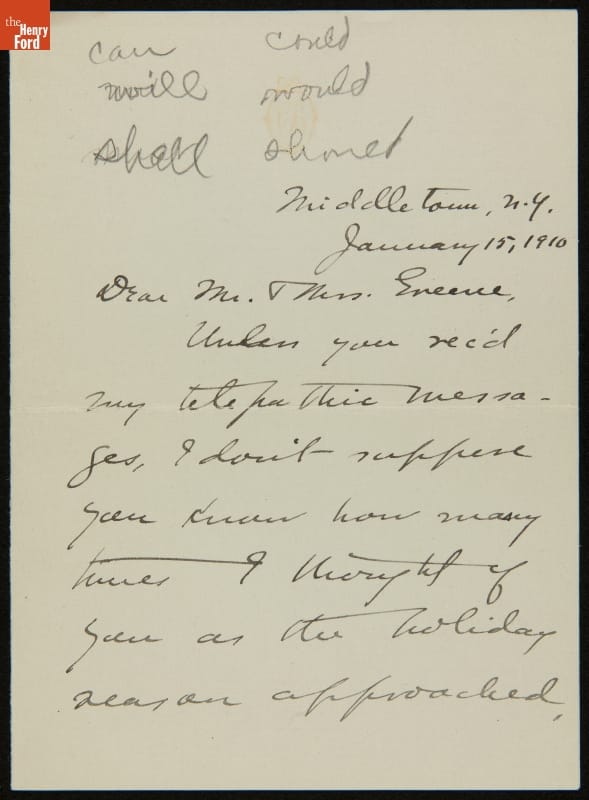 the
Henry
Ford
can could
will would
shall should
Middletown, N.Y.
January 15, 1910
Dear Mr. & Mrs. Greene,
Unless you rec'd
my telepathic messa-
ges, I don't suppose
you know how many
times I thought of
you as the holiday
season approached,